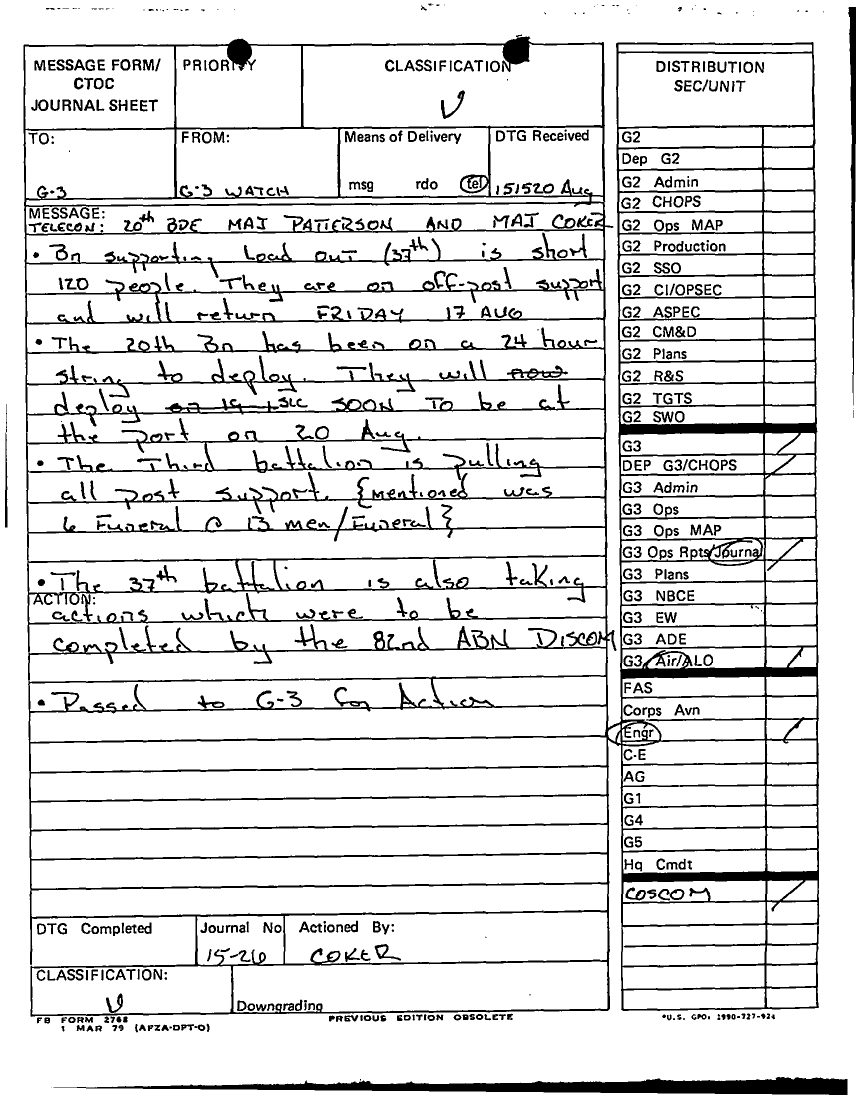 MESSAGE FORM/
CTOC
JOURNAL SHEET
PRIORITY
CLASSIFICATION
U
TO:
G-3
FROM:
G-3 WATCH
Means of Delivery
msg rdo tel
DTG Received
151520 Aug
MESSAGE:
TELECON: 20th BDE MAJ PATTERSON AND MAJ COKER
• Bn supporting Load out (37th) is short
120 people. They are on off-post support
and will return FRIDAY 17 AUG
• The 20th Bn has been on a 24 hour
string to deploy. They will now
deploy on 19 SOON TO be at
the port on 20 Aug.
• The Third battalion is pulling
all post support. {mentioned was
6 Funeral @ 13 men/Funeral}
• The 37th battalion is also taking
ACTION:
actions which were to be
completed by the 82nd ABN DISCOM
• Passed to G-3 for Action
DTG Completed
Journal No
15-26
Actioned By:
COKER
CLASSIFICATION:
U
Downgrading
FB FORM 2768
1 MAR 79 (AFZA-DPT-O)
PREVIOUS EDITION OBSOLETE
DISTRIBUTION
SEC/UNIT
G2
Dep G2
G2 Admin
G2 CHOPS
G2 Ops MAP
G2 Production
G2 SSO
G2 CI/OPSEC
G2 ASPEC
G2 CM&D
G2 Plans
G2 R&S
G2 TGTS
G2 SWO
G3
DEP G3/CHOPS
G3 Admin
G3 Ops
G3 Ops MAP
G3 Ops Rpts/Journal
G3 Plans
G3 NBCE
G3 EW
G3 ADE
G3 Air/ALO
FAS
Corps Avn
Engr
C-E
AG
G1
G4
G5
Hq Cmdt
COSCOM
*U.S. GPO: 1990-727-924